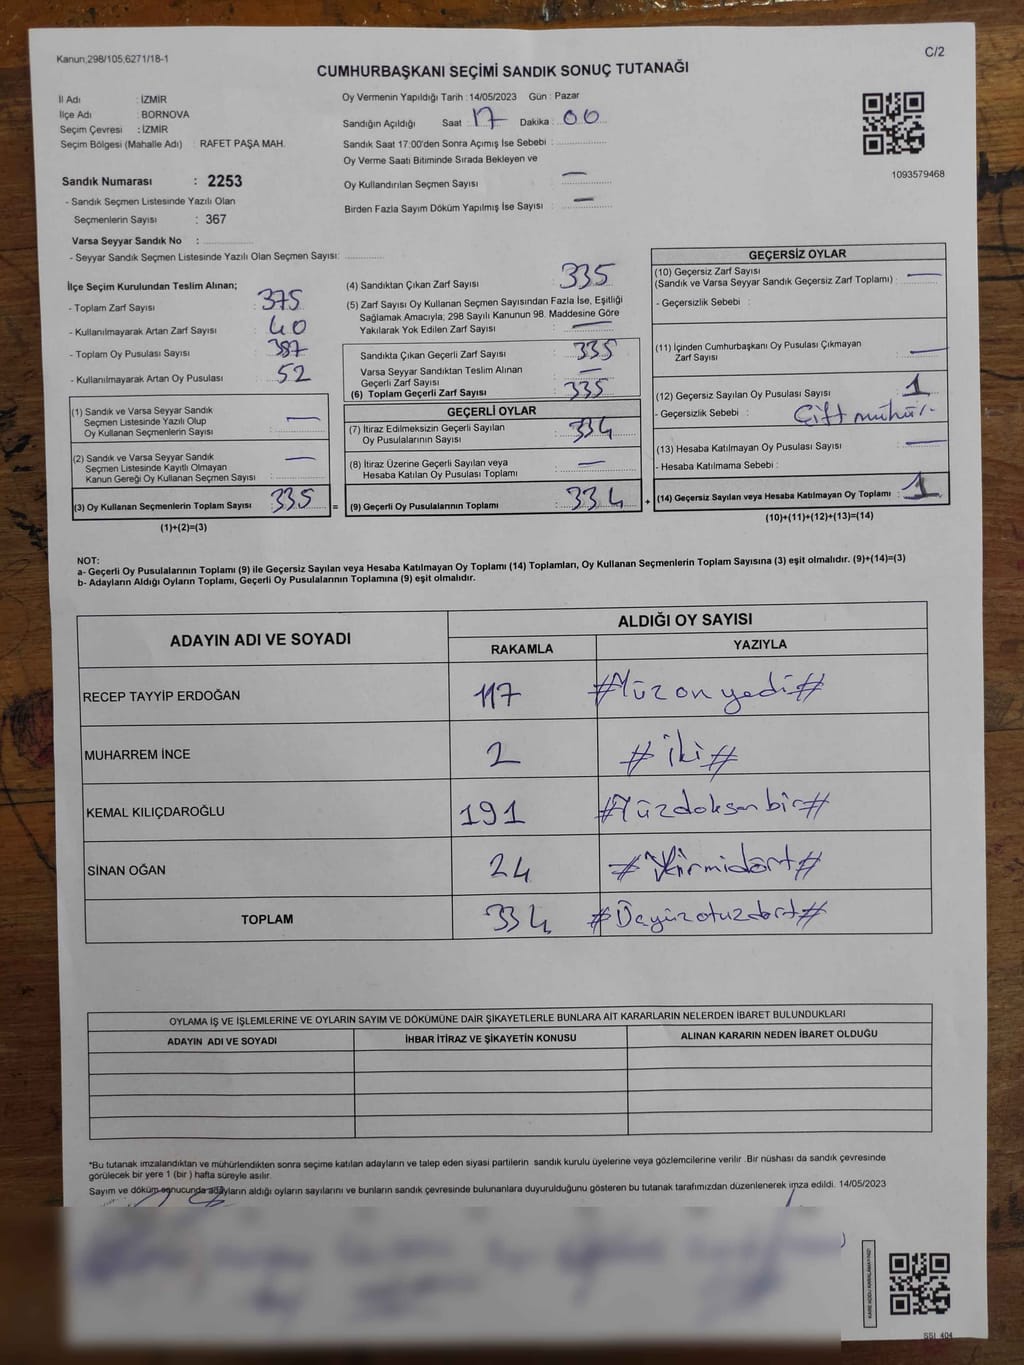 Kanun;298/105,6271/18-1
C/2
CUMHURBAŞKANI SEÇİMİ SANDIK SONUÇ TUTANAĞI
İl Adı : İZMİR
İlçe Adı : BORNOVA
Seçim Çevresi : İZMİR
Seçim Bölgesi (Mahalle Adı) : RAFET PAŞA MAH.
Sandık Numarası : 2253
- Sandık Seçmen Listesinde Yazılı Olan
Seçmenlerin Sayısı : 367
Varsa Seyyar Sandık No :
- Seyyar Sandık Seçmen Listesinde Yazılı Olan Seçmen Sayısı:
Oy Vermenin Yapıldığı Tarih : 14/05/2023 Gün : Pazar
Sandığın Açıldığı Saat : 17 Dakika : 00
Sandık Saat 17:00'den Sonra Açımış İse Sebebi :
Oy Verme Saati Bitiminde Sırada Bekleyen ve
Oy Kullandırılan Seçmen Sayısı : —
Birden Fazla Sayım Döküm Yapılmış İse Sayısı : —
1093579468
İlçe Seçim Kurulundan Teslim Alınan;
- Toplam Zarf Sayısı : 375
- Kullanılmayarak Artan Zarf Sayısı : 40
- Toplam Oy Pusulası Sayısı : 387
- Kullanılmayarak Artan Oy Pusulası : 52
(1) Sandık ve Varsa Seyyar Sandık
Seçmen Listesinde Yazılı Olup
Oy Kullanan Seçmenlerin Sayısı : —
(2) Sandık ve Varsa Seyyar Sandık
Seçmen Listesinde Kayıtlı Olmayan
Kanun Gereği Oy Kullanan Seçmen Sayısı : —
(3) Oy Kullanan Seçmenlerin Toplam Sayısı : 335
(1)+(2)=(3)
(4) Sandıktan Çıkan Zarf Sayısı : 335
(5) Zarf Sayısı Oy Kullanan Seçmen Sayısından Fazla İse, Eşitliği
Sağlamak Amacıyla; 298 Sayılı Kanunun 98. Maddesine Göre
Yakılarak Yok Edilen Zarf Sayısı : —
Sandıkta Çıkan Geçerli Zarf Sayısı : 335
Varsa Seyyar Sandıktan Teslim Alınan
Geçerli Zarf Sayısı : —
(6) Toplam Geçerli Zarf Sayısı : 335
GEÇERLİ OYLAR
(7) İtiraz Edilmeksizin Geçerli Sayılan
Oy Pusulalarının Sayısı : 334
(8) İtiraz Üzerine Geçerli Sayılan veya
Hesaba Katılan Oy Pusulası Toplamı : —
= (9) Geçerli Oy Pusulalarının Toplamı : 334 +
GEÇERSİZ OYLAR
(10) Geçersiz Zarf Sayısı
(Sandık ve Varsa Seyyar Sandık Geçersiz Zarf Toplamı) : —
- Geçersizlik Sebebi :
(11) İçinden Cumhurbaşkanı Oy Pusulası Çıkmayan
Zarf Sayısı : —
(12) Geçersiz Sayılan Oy Pusulası Sayısı : 1
- Geçersizlik Sebebi : Çift mühür.
(13) Hesaba Katılmayan Oy Pusulası Sayısı : —
- Hesaba Katılmama Sebebi :
(14) Geçersiz Sayılan veya Hesaba Katılmayan Oy Toplamı : 1
(10)+(11)+(12)+(13)=(14)
NOT:
a- Geçerli Oy Pusulalarının Toplamı (9) ile Geçersiz Sayılan veya Hesaba Katılmayan Oy Toplamı (14) Toplamları, Oy Kullanan Seçmenlerin Toplam Sayısına (3) eşit olmalıdır. (9)+(14)=(3)
b- Adayların Aldığı Oyların Toplamı, Geçerli Oy Pusulalarının Toplamına (9) eşit olmalıdır.
ADAYIN ADI VE SOYADI
ALDIĞI OY SAYISI
RAKAMLA YAZIYLA
RECEP TAYYİP ERDOĞAN 117 #Yüzonyedi#
MUHARREM İNCE 2 #iki#
KEMAL KILIÇDAROĞLU 191 #Yüzdoksanbir#
SİNAN OĞAN 24 #Yirmidört#
TOPLAM 334 #Üçyüzotuzdört#
OYLAMA İŞ VE İŞLEMLERİNE VE OYLARIN SAYIM VE DÖKÜMÜNE DAİR ŞİKAYETLERLE BUNLARA AİT KARARLARIN NELERDEN İBARET BULUNDUKLARI
ADAYIN ADI VE SOYADI İHBAR İTİRAZ VE ŞİKAYETİN KONUSU ALINAN KARARIN NEDEN İBARET OLDUĞU
*Bu tutanak imzalandıktan ve mühürlendikten sonra seçime katılan adayların ve talep eden siyasi partilerin sandık kurulu üyelerine veya gözlemcilerine verilir .Bir nüshası da sandık çevresinde
görülecek bir yere 1 (bir ) hafta süreyle asılır.
Sayım ve döküm sonucunda adayların aldığı oyların sayılarını ve bunların sandık çevresinde bulunanlara duyurulduğunu gösteren bu tutanak tarafımızdan düzenlenerek imza edildi. 14/05/2023
SSI_404